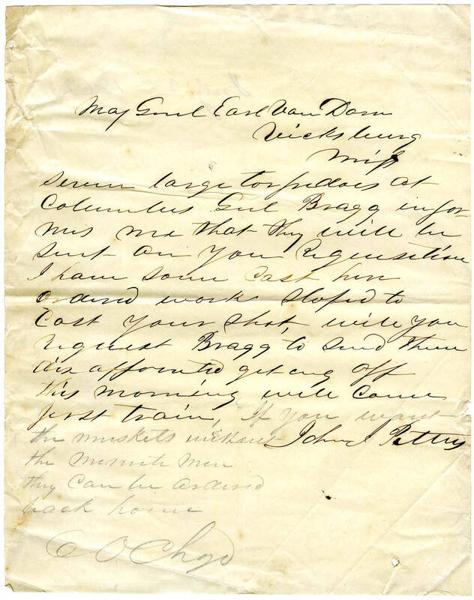 Maj Genl Earl Van Dorn
Vicksburg
Miss
Seven large torpedoes at
Columbus Genl Bragg infor
ms me that they will be
sent on your requisition
I have some cast here
ordered work stoped to
cast your shot, will you
request Bragg to send them
disappointed getting off
this morning will come
first train, If you want
the muskets without John J Pettus
the minute men
they can be ordered
back home
C O Chgd